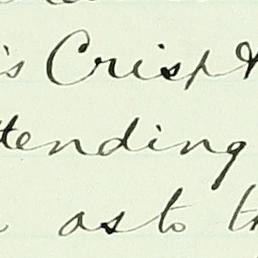 's Crisp
tending
as to